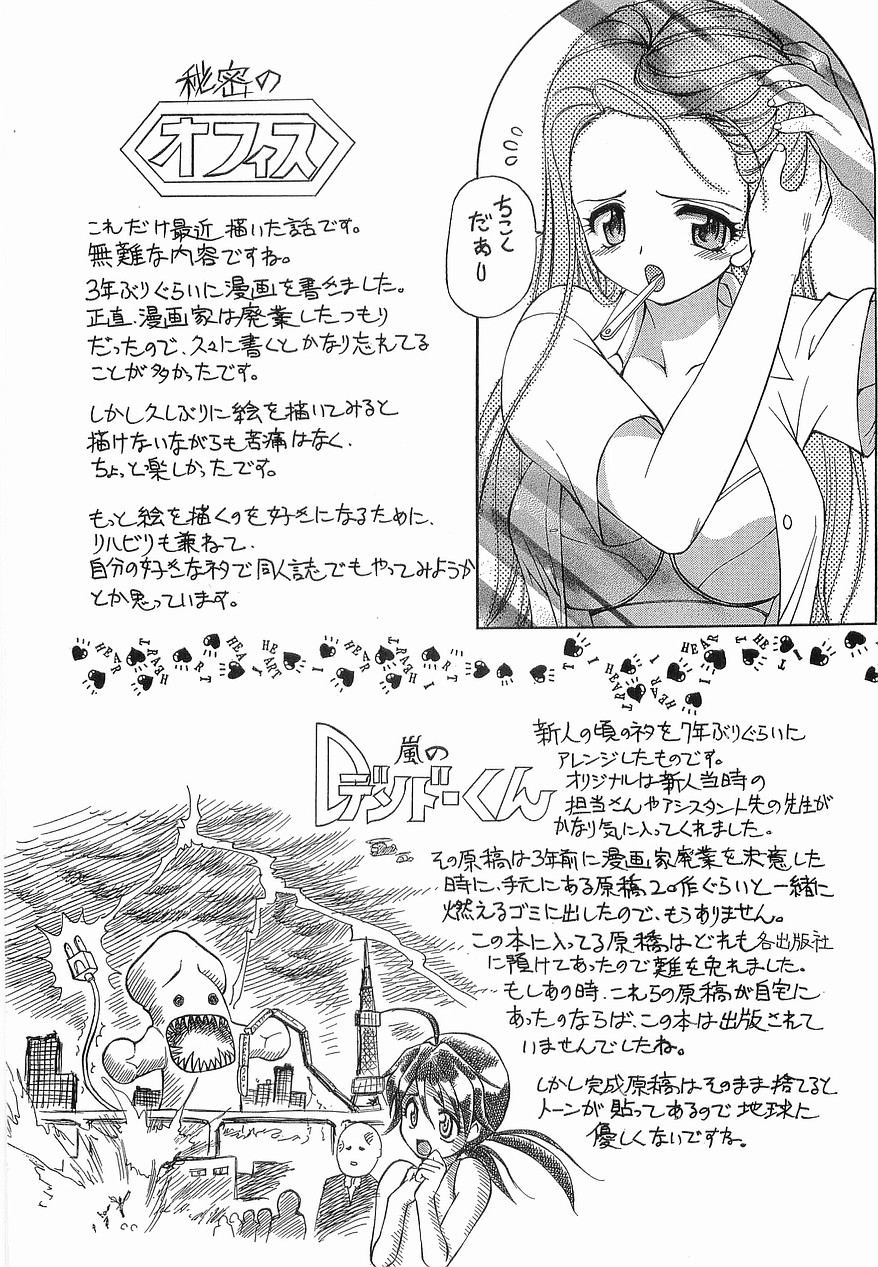 秘密の
オフィス
これだけ最近描いた話です。
無難な内容ですね。
3年ぶりぐらいに漫画を書きました。
正直、漫画家は廃業したつもり
だったので、久々に書くとかなり忘れてる
ことが多かったです。
しかし久しぶりに絵を描いてみると
描けないながらも苦痛はなく、
ちょっと楽しかったです。
もっと絵を描くのを好きになるために、
リハビリも兼ねて、
自分の好きなネタで同人誌でもやってみようか
とか思っています。
ちこく
だぁー
I HEART I HEART I HEART I HEART I HEART I HEART I HEART
嵐の
デンドーくん
新人の頃のネタを7年ぶりぐらいに
アレンジしたものです。
オリジナルは新人当時の
担当さんやアシスタント先の先生が
かなり気に入ってくれました。
その原稿は3年前に漫画家廃業を決意した
時に、手元にある原稿20作ぐらいと一緒に
燃えるゴミに出したので、もうありません。
この本に入ってる原稿はどれも各出版社
に預けてあったので難を免れました。
もしあの時、これらの原稿が自宅に
あったのならば、この本は出版されて
いませんでしたね。
しかし完成原稿はそのまま捨てると
トーンが貼ってあるので地球に
優しくないですね。